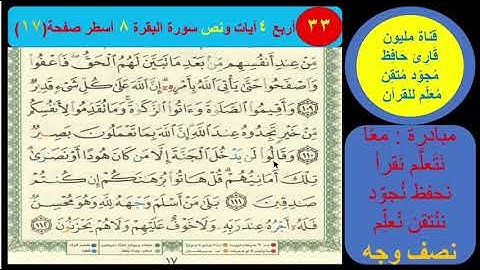 ٣٣ أربع ٤ آيات ونص سورة البقرة ٨ أسطر صفحة(١٧)
مِّنْ عِندِ أَنفُسِهِم مِّنۢ بَعْدِ مَا تَبَيَّنَ لَهُمُ ٱلْحَقُّ فَٱعْفُوا۟
وَٱصْفَحُوا۟ حَتَّىٰ يَأْتِىَ ٱللَّهُ بِأَمْرِهِۦٓ إِنَّ ٱللَّهَ عَلَىٰ كُلِّ شَىْءٍ قَدِيرٌ
١٠٩ وَأَقِيمُوا۟ ٱلصَّلَوٰةَ وَءَاتُوا۟ ٱلزَّكَوٰةَ وَمَا تُقَدِّمُوا۟ لِأَنفُسِكُم
مِّنْ خَيْرٍ تَجِدُوهُ عِندَ ٱللَّهِ إِنَّ ٱللَّهَ بِمَا تَعْمَلُونَ بَصِيرٌ
١١٠ وَقَالُوا۟ لَن يَدْخُلَ ٱلْجَنَّةَ إِلَّا مَن كَانَ هُودًا أَوْ نَصَٰرَىٰ
تِلْكَ أَمَانِيُّهُمْ قُلْ هَاتُوا۟ بُرْهَٰنَكُمْ إِن كُنتُمْ
صَٰدِقِينَ ١١١ بَلَىٰ مَنْ أَسْلَمَ وَجْهَهُۥ لِلَّهِ وَهُوَ مُحْسِنٌ
فَلَهُۥٓ أَجْرُهُۥ عِندَ رَبِّهِۦ وَلَا خَوْفٌ عَلَيْهِمْ وَلَا هُمْ يَحْزَنُونَ ١١٢
١٧
قناة مليون
قارئ حافظ
مُجوّد مُتقن
مُعلّم للقرآن
مبادرة : معًا
نتَعلّم نَقرأ
نحفظ نُجوّد
نتْقن نُعلّم
نصف وجه